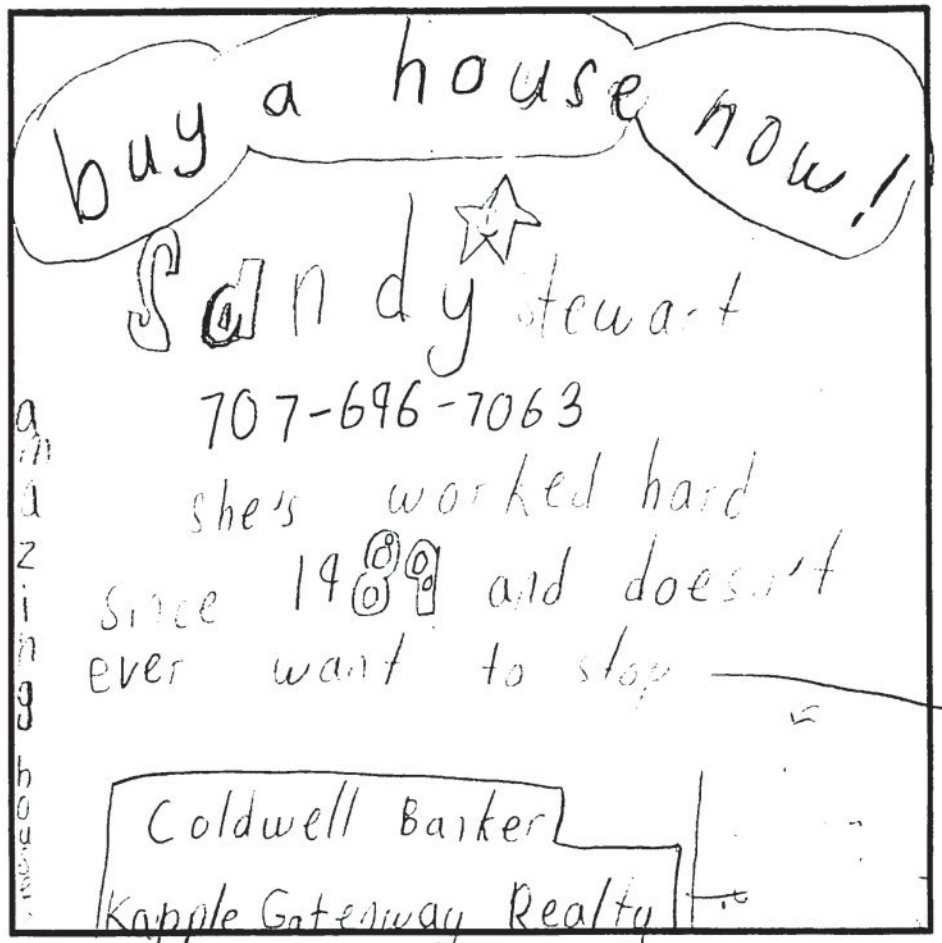 buy a house now!
Sandy Stewart
707-696-7063
she's worked hard
since 1989 and doesn't
ever want to stop
amazing
Coldwell Banker
Kapple Gateway Realty